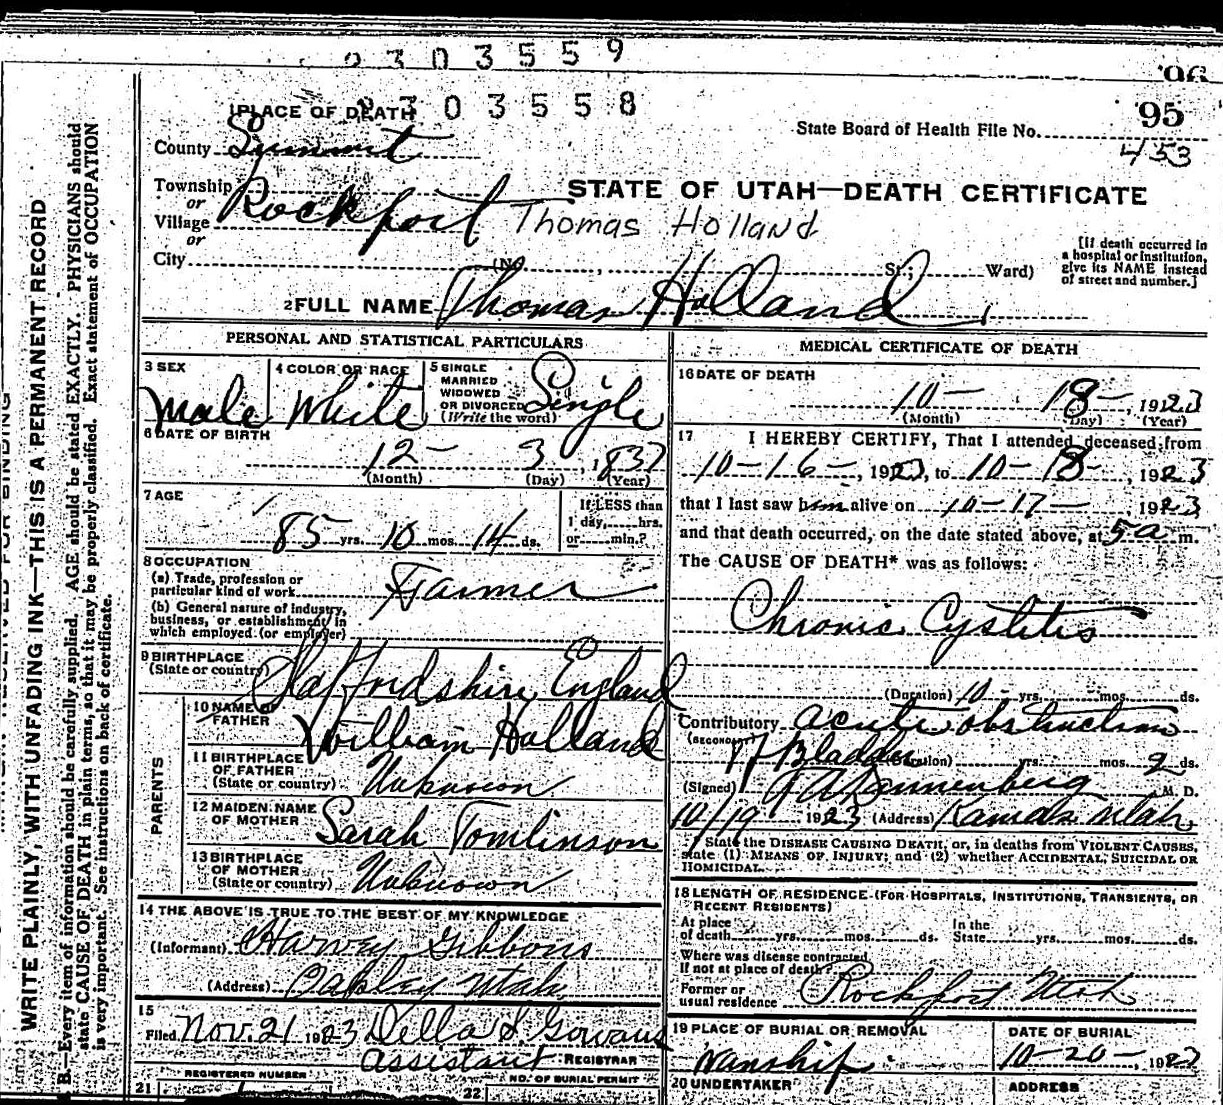 303559
96
303558
95
1 PLACE OF DEATH
State Board of Health File No.
453
County Summit
STATE OF UTAH—DEATH CERTIFICATE
Township
or
Village
Rockport
Thomas Holland
or
City (No. , St.; Ward)
[If death occurred in
a hospital or institution,
give its NAME instead
of street and number.]
2 FULL NAME Thomas Holland
PERSONAL AND STATISTICAL PARTICULARS
3 SEX
Male
4 COLOR OR RACE
White
5 SINGLE
MARRIED
WIDOWED
OR DIVORCED
(Write the word)
Single
6 DATE OF BIRTH
12 — 3, 1837
(Month) (Day) (Year)
7 AGE
85 yrs. 10 mos. 14 ds.
If LESS than
1 day, hrs.
or min.?
8 OCCUPATION
(a) Trade, profession or
particular kind of work
Farmer
(b) General nature of industry,
business, or establishment in
which employed (or employer)
9 BIRTHPLACE
(State or country)
Staffordshire, England
PARENTS
10 NAME OF
FATHER
William Holland
11 BIRTHPLACE
OF FATHER
(State or country)
Unknown
12 MAIDEN NAME
OF MOTHER
Sarah Tomlinson
13 BIRTHPLACE
OF MOTHER
(State or country)
Unknown
14 THE ABOVE IS TRUE TO THE BEST OF MY KNOWLEDGE
(Informant) Harvey Gibbons
(Address) Oakley Utah
15
Filed Nov. 21 1923 Della S. Gowans
assistant REGISTRAR
REGISTERED NUMBER
NO. OF BURIAL PERMIT
21
22
MEDICAL CERTIFICATE OF DEATH
16 DATE OF DEATH
10 — 18 —, 1923
(Month) (Day) (Year)
17 I HEREBY CERTIFY, That I attended deceased from
10-16-, 1923, to 10-18-, 1923
that I last saw him alive on 10-17-1923
and that death occurred, on the date stated above, at 5 a. m.
The CAUSE OF DEATH* was as follows:
Chronic Cystitis
(Duration) 10 yrs. mos. ds.
Contributory acute obstruction
(SECONDARY)
of Bladder (Duration) yrs. mos. 2 ds.
(Signed) M. D.
10/19 1923 (Address) Kamas Utah
State the DISEASE CAUSING DEATH, or, in deaths from VIOLENT CAUSES,
state (1) MEANS OF INJURY; and (2) whether ACCIDENTAL, SUICIDAL OR
HOMICIDAL.
18 LENGTH OF RESIDENCE (FOR HOSPITALS, INSTITUTIONS, TRANSIENTS, OR
RECENT RESIDENTS)
At place
of death yrs. mos. ds.
In the
State yrs. mos. ds.
Where was disease contracted
If not at place of death?
Former or
usual residence
Rockport Utah
19 PLACE OF BURIAL OR REMOVAL
Wanship
DATE OF BURIAL
10-20-, 1923
20 UNDERTAKER
ADDRESS
WRITE PLAINLY, WITH UNFADING INK—THIS IS A PERMANENT RECORD
B.—Every item of information should be carefully supplied. AGE should be stated EXACTLY. PHYSICIANS should
state CAUSE OF DEATH in plain terms, so that it may be properly classified. Exact statement of OCCUPATION
is very important. See instructions on back of certificate.